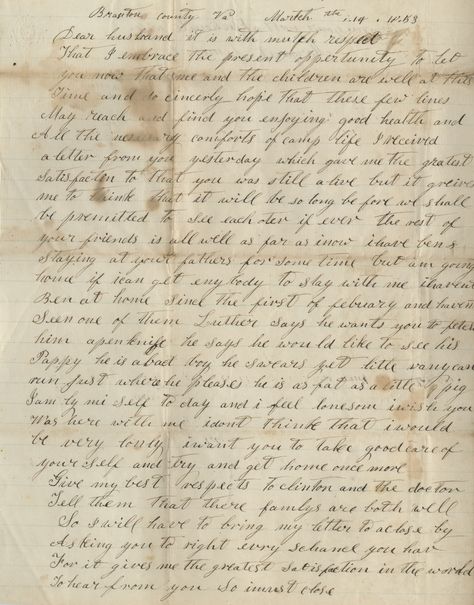 Braxton county Va March the 14. 1863
Dear husband it is with mutch respect
That I embrace the present oppertunity to let
you now that me and the children are well at this
Time and do cincerly hope that these few lines
May reach and find you enjoying good health and
All the nessecary comforts of camp life I received
a letter from you yesterday which gave me the gratest
Satisfacten to that you was still alive but it greive
me to think that it will be so long be fore we shall
be premitted to see each oder if ever the rest of
your friends is all well as far as i now i have ben
Staying at your fathers for some time but am going
home if i can get eny body to stay with me i havent
Ben at home since the first of febuary and havent
Seen one of them Luther says he wants you to fetch
him a pen knife he says he would like to see his
Pappy he is a bad boy he swears yet little van can
run just where he pleases he is as fat as a little pig
I am by mi self to day and i feel lonesom i wish you
Was here with me i dont think that i would
be very lonly i want you to take good care of
your self and try and get home once more
Give my best respects to clinton and the doctor
Tell them that there familys are both well
So I will have to bring my letter to a close by
Asking you to right evry schance you hav
For it gives me the greatest satisfaction in the world
To hear from you So i must close